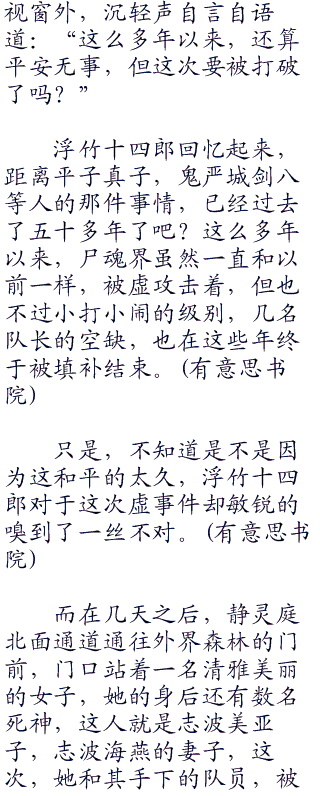 视窗外，沉轻声自言自语
道：“这么多年以来，还算
平安无事，但这次要被打破
了吗？”
浮竹十四郎回忆起来，
距离平子真子，鬼严城剑八
等人的那件事情，已经过去
了五十多年了吧？这么多年
以来，尸魂界虽然一直和以
前一样，被虚攻击着，但也
不过小打小闹的级别，几名
队长的空缺，也在这些年终
于被填补结束。(有意思书
院)
只是，不知道是不是因
为这和平的太久，浮竹十四
郎对于这次虚事件却敏锐的
嗅到了一丝不对。(有意思书
院)
而在几天之后，静灵庭
北面通道通往外界森林的门
前，门口站着一名清雅美丽
的女子，她的身后还有数名
死神，这人就是志波美亚
子，志波海燕的妻子，这
次，她和其手下的队员，被